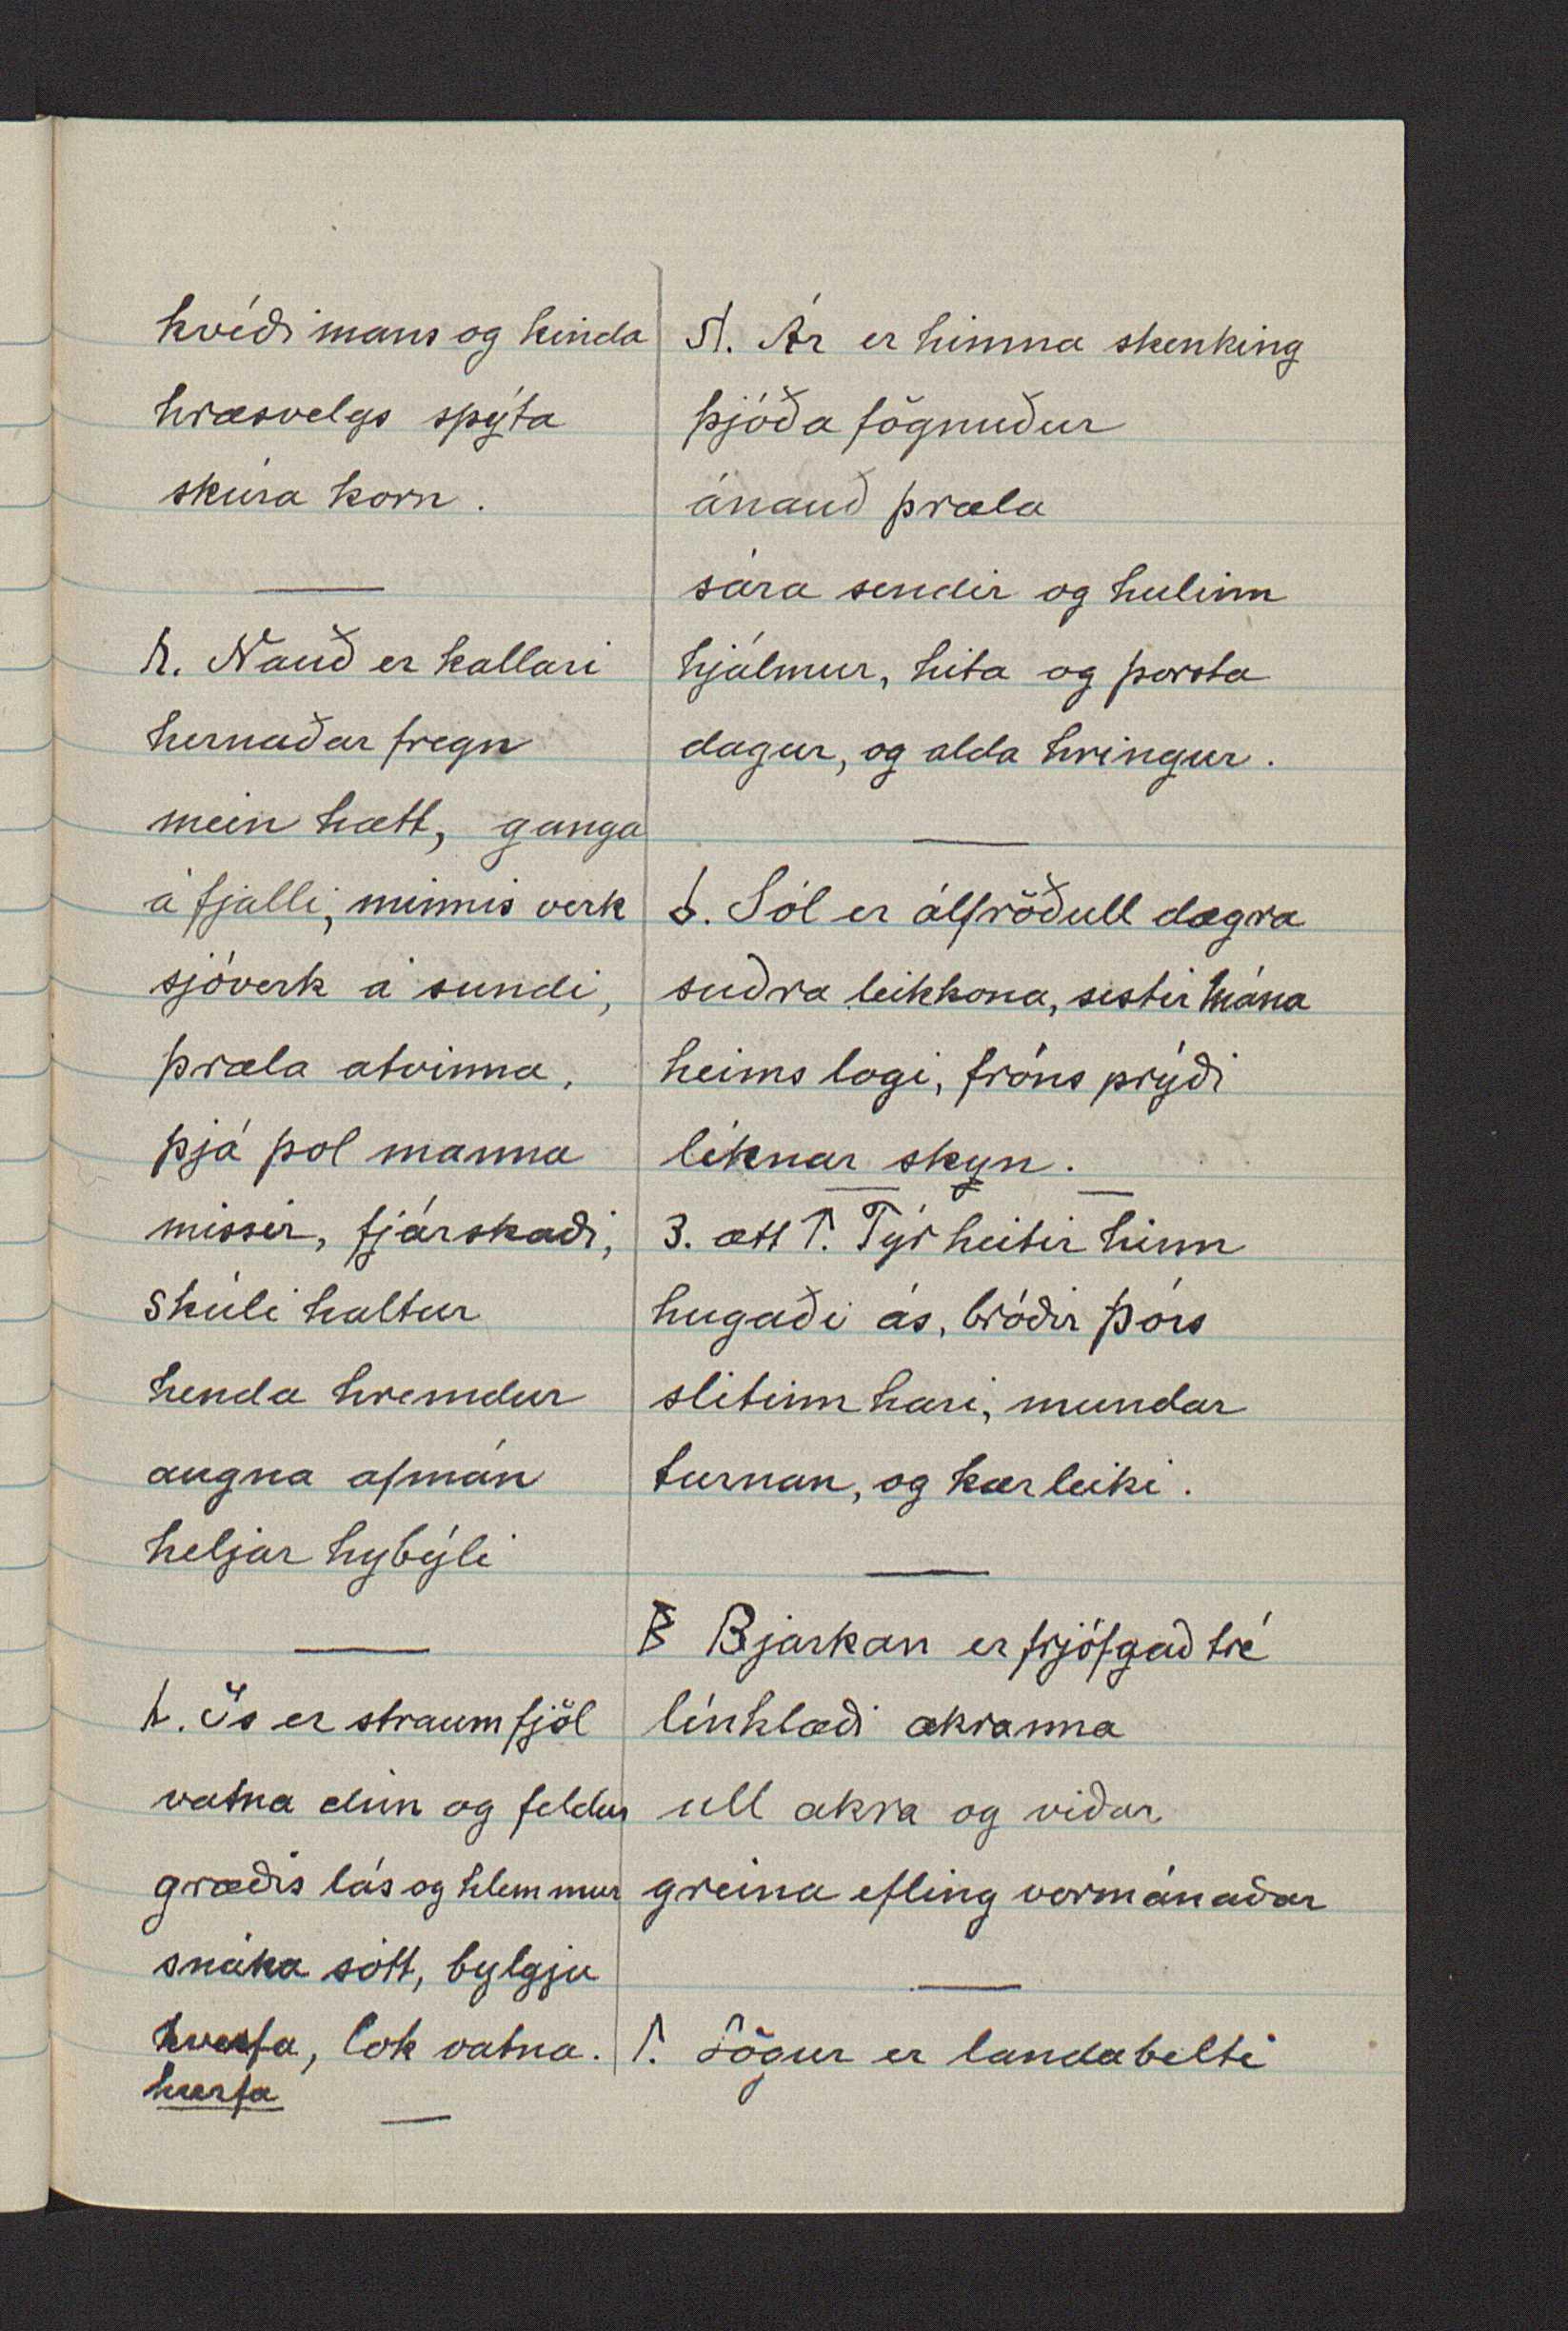 kvíði mans og kinda
hræsvelgs spýta
skúra korn.
Nauð er kallari
hernaðar fregn
mein hætt, ganga
á fjalli, minnis verk
sjóverk á sundi,
þræla atvinna,
þjá þol manna
missir, fjárskaði,
skúli haltur
henda hremdur
augna afmán
heljar hybýli
Ís er straum fjöl
vatna dún og feldur
græðis lás og klemmur
snáka sótt, bylgju
hverfa, lok vatna.
hverfa
Ár er himna skenking
þjóða fögnuður
ánauð þræla
sára sendir og hulinn
hjálmur, hita og þorsta
dagur, og alda hringur.
Sól er álfröðull dægra
suðra leikkona, sistir Mána
heims logi, fróns prýði
líknar skyn.
3. ætt ᛏ. Týr heitir hinn
hugaði ás, bróðir Þórs
slitinn hari, mundar
turnan, og kærleiki.
ᛒ Bjarkan er frjófgað tré
línklæði akranna
ull akra og viðar
greina efling vormánaðar
ᛚ. Lögur er landabelti